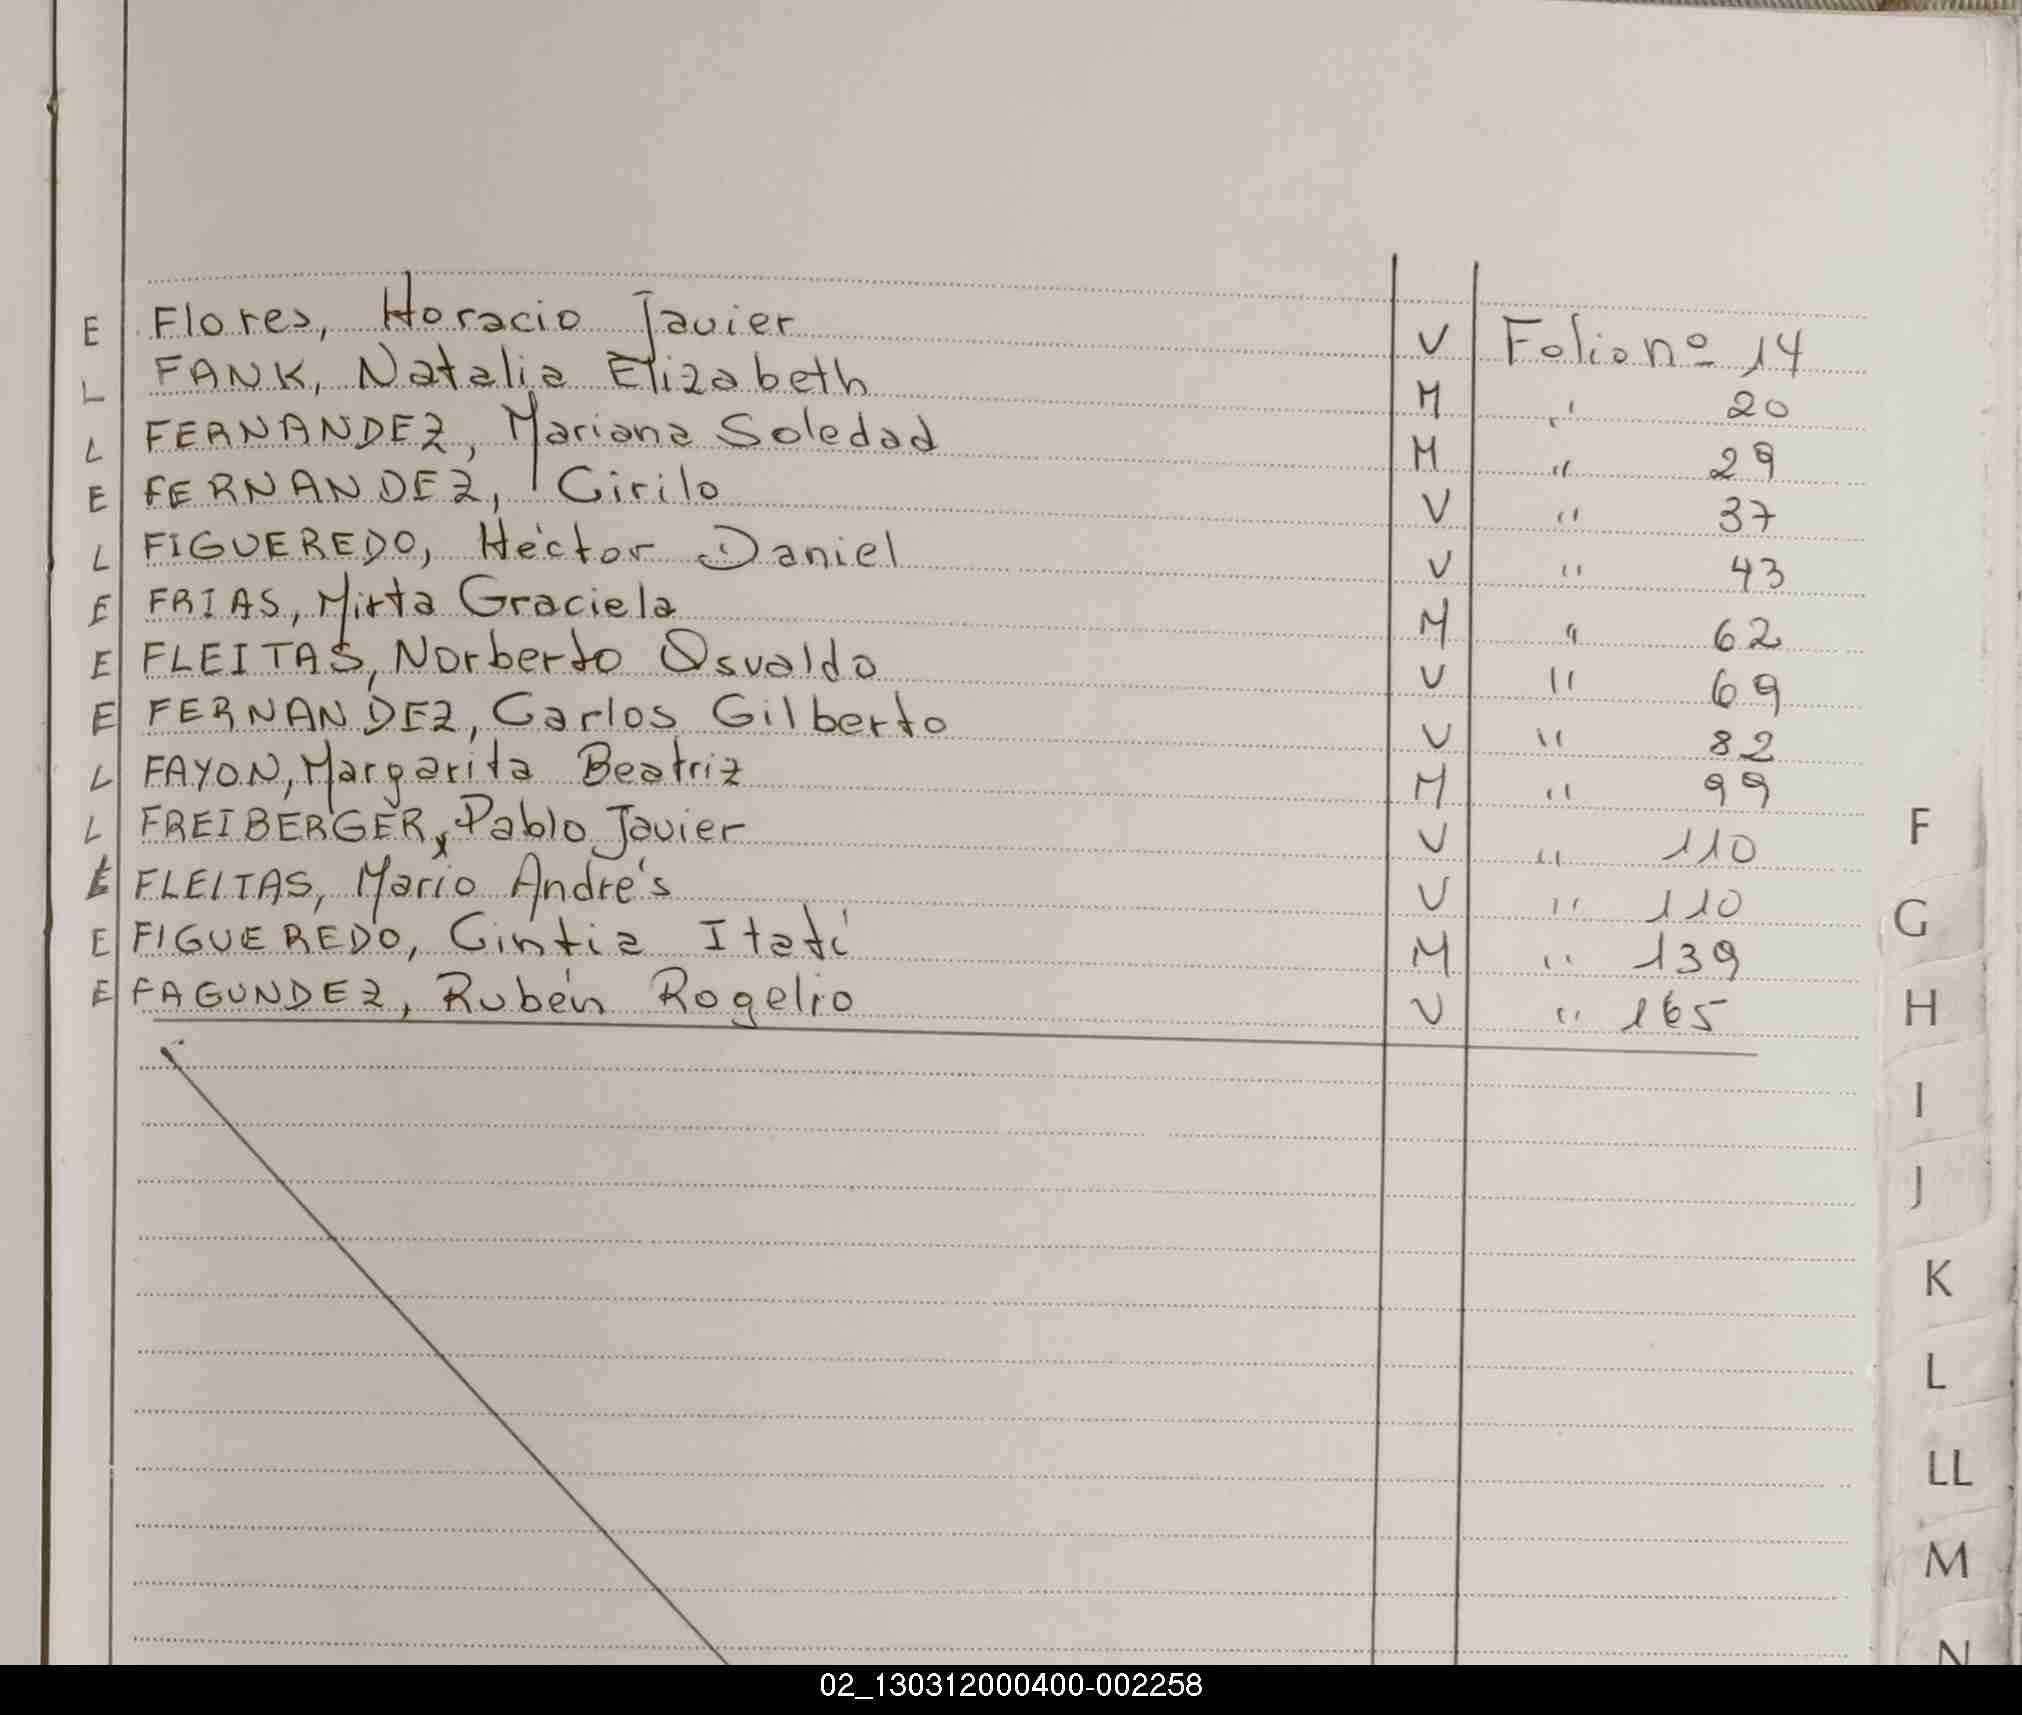 E Flores, Horacio Javier V Folio nº 14
L FANK, Natalia Elizabeth M " 20
L FERNANDEZ, Mariana Soledad M " 29
E FERNANDEZ, Cirilo V " 37
L FIGUEREDO, Héctor Daniel V " 43
E FRIAS, Mirta Graciela M " 62
E FLEITAS, Norberto Osvaldo V " 69
E FERNANDEZ, Carlos Gilberto V " 82
L FAYON, Margarita Beatriz M " 99
L FREIBERGER, Pablo Javier V " 110
E FLEITAS, Mario Andrés V " 110
E FIGUEREDO, Cintia Itatí M " 139
E FAGUNDEZ, Rubén Rogelio V " 165
F
G
H
I
J
K
L
LL
M
N
02_130312000400-002258